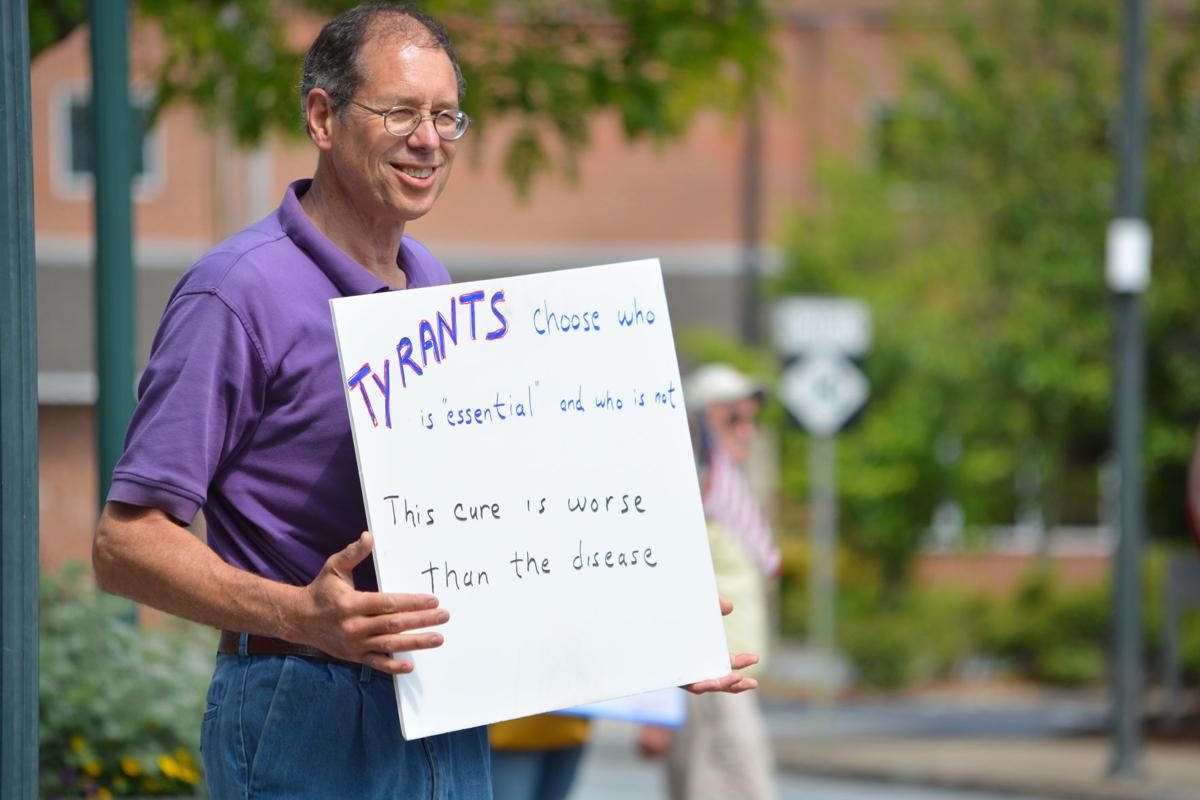 TYRANTS Choose who
is "essential" and who is not
This cure is worse
than the disease